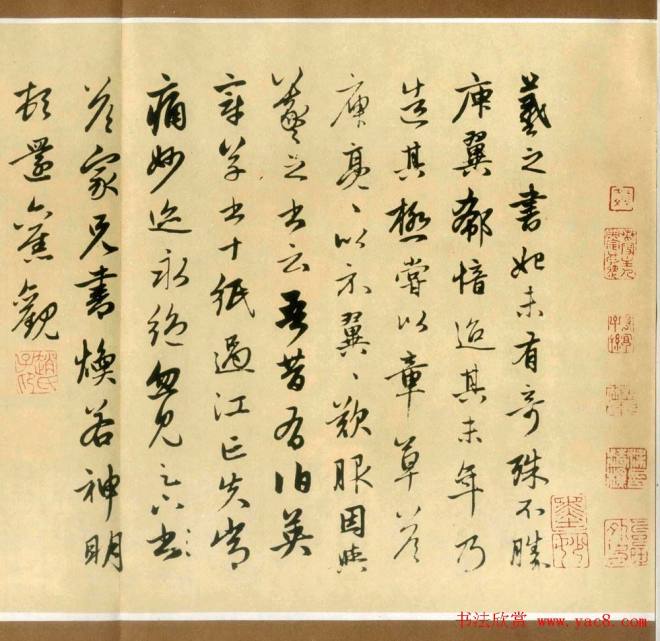 羲之書始未有奇殊不勝
庾翼郗愔迨其末年乃
造其極嘗以章草答
庾亮、以示翼、歎服因與
羲之書云吾昔有伯英
章草書十紙過江亡失常
痛妙迹永絕忽見足下書
答家兄書煥若神明
頓還舊觀
趙氏子昂
书法欣赏 www.yac8.com